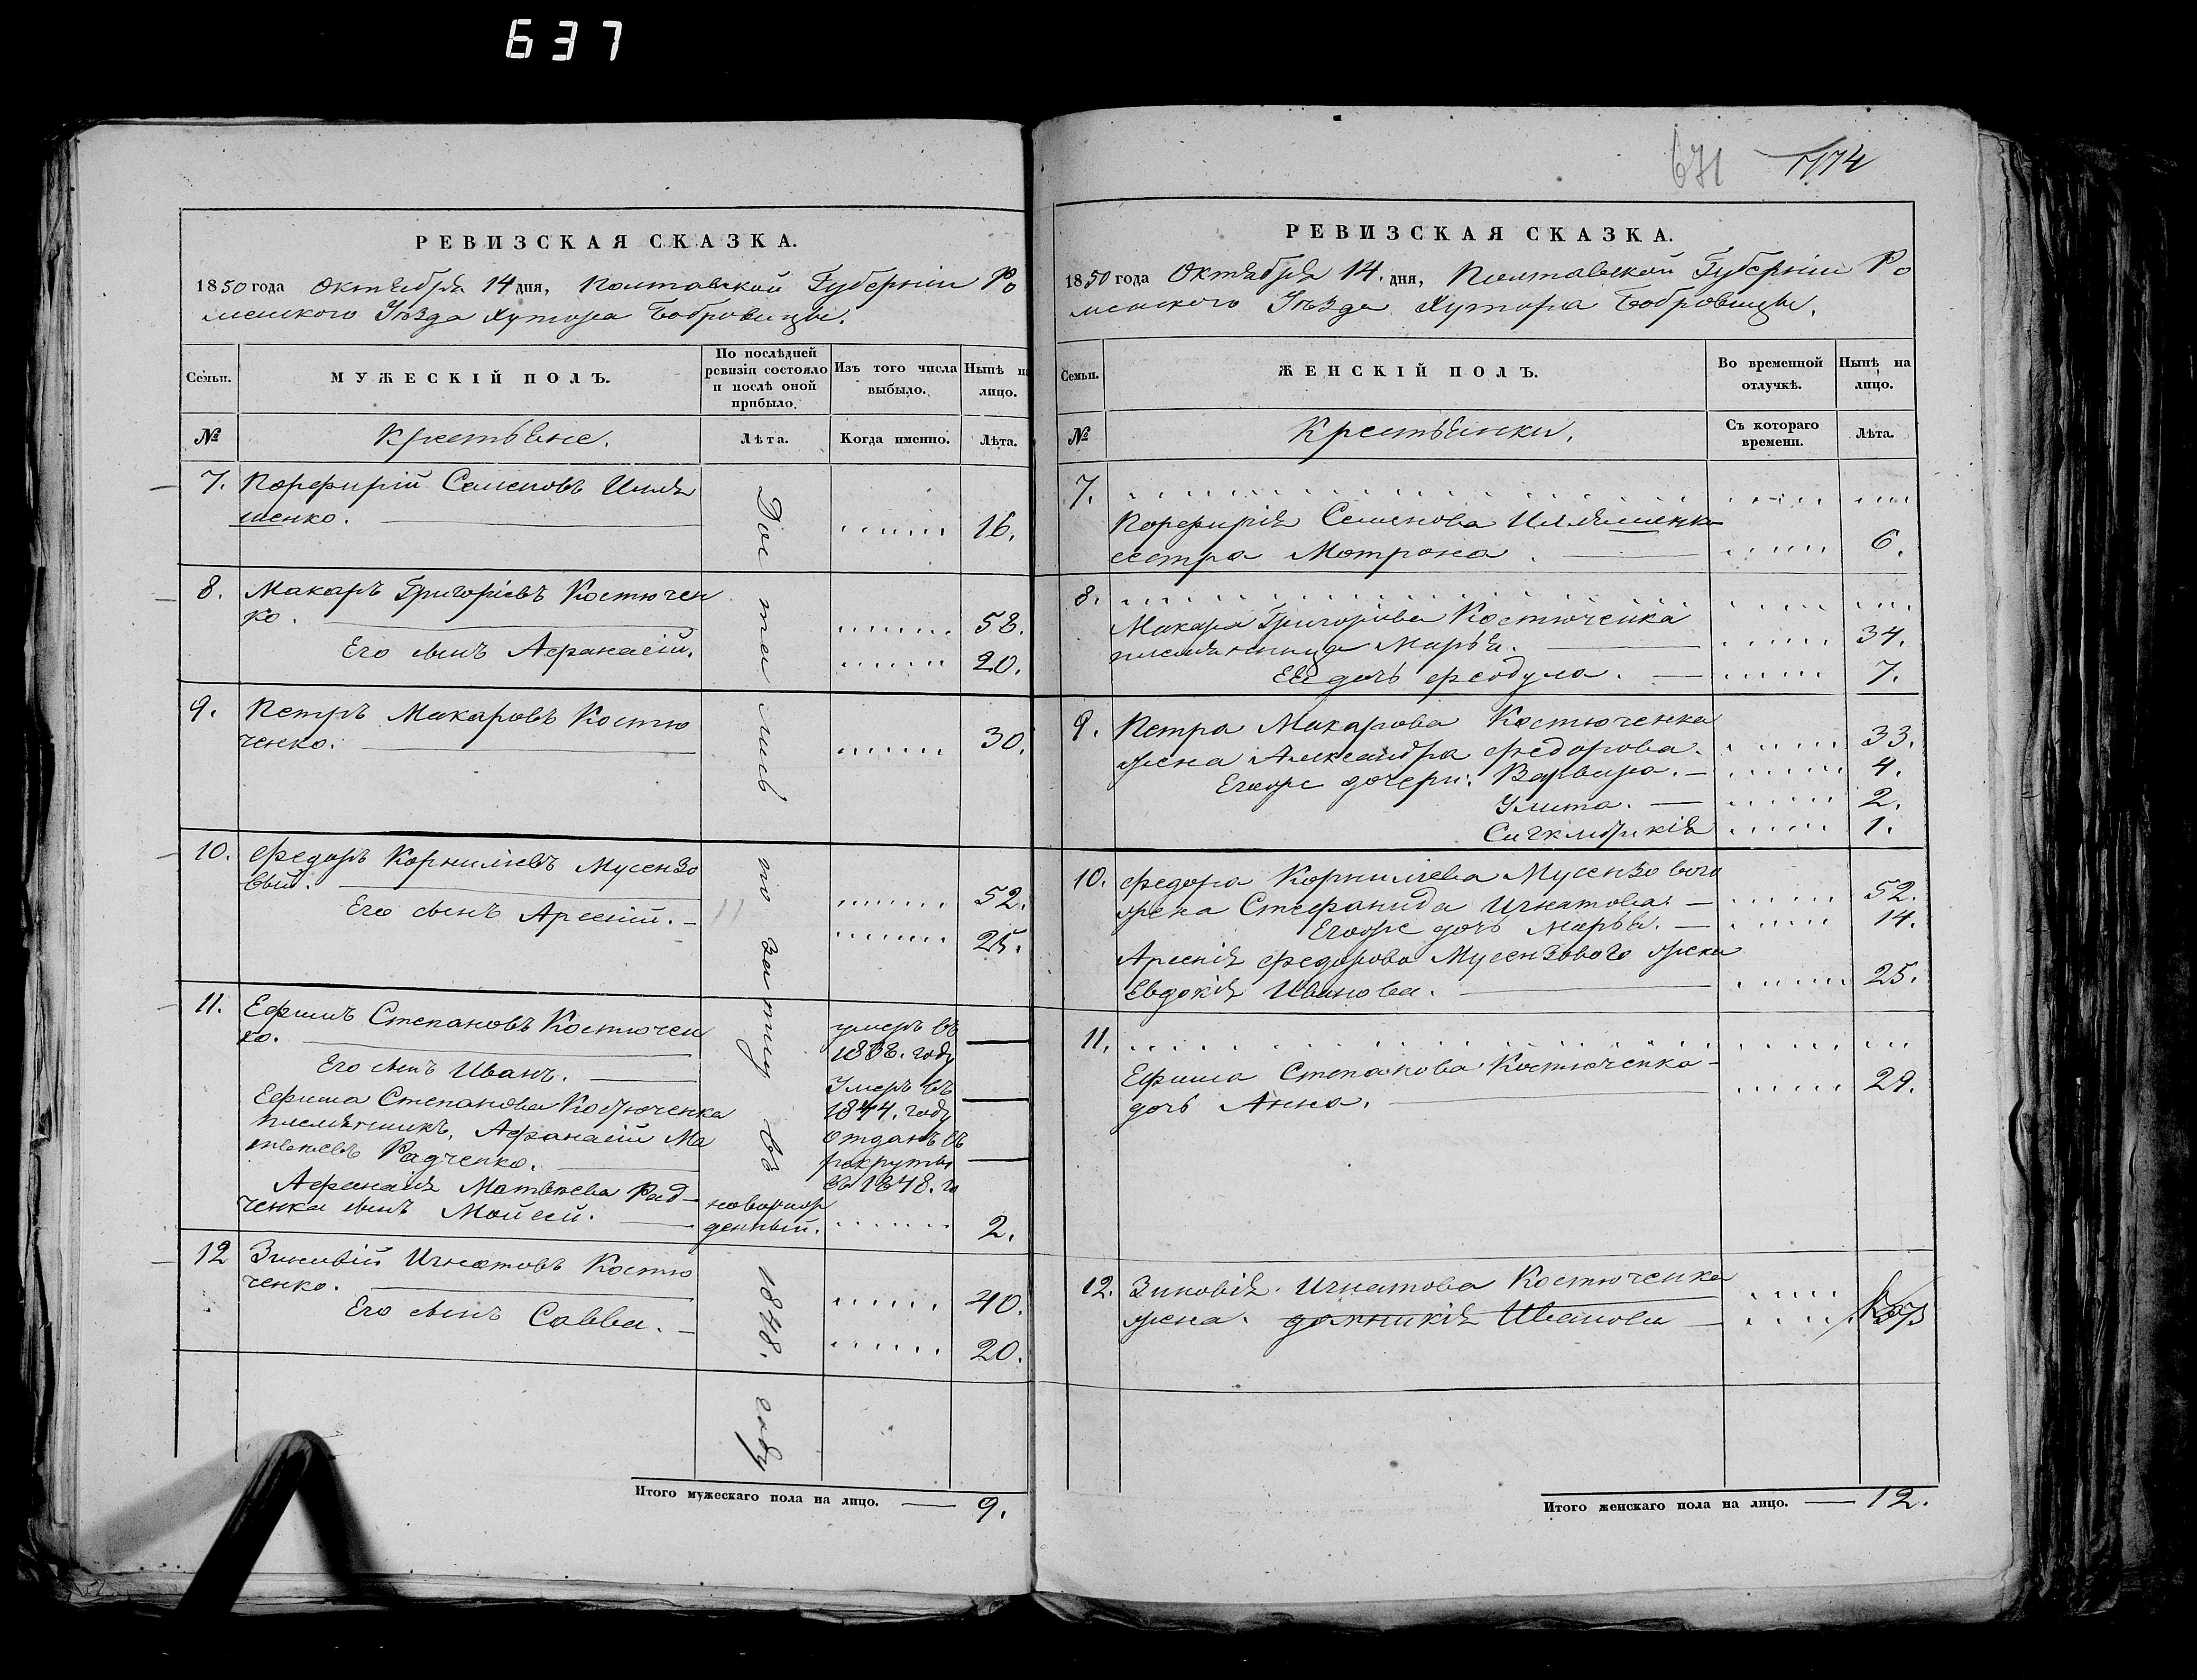 637
РЕВИЗСКАЯ СКАЗКА.
1850 года Октября 14 дня, Полтавской Губернiи Ро
менского Уѣзда Хутора Бобровицы.
Семьи.
МУЖЕСКIЙ ПОЛЪ.
По послѣдней ревизiи состояло и послѣ оной прибыло.
Изъ того числа выбыло.
Нынѣ на лицо.
№
Крестьяне.
Лѣта.
Когда именно.
Лѣта.
7. Порфирiй Семеновъ Иля
шенко. 16.
8. Макаръ Григорiевъ Костючен
ко. 58.
Его сынъ Афанасiй. 20.
9. Петръ Макаровъ Костю
ченко. 30.
10. Федоръ Корнилiевъ Мусензо
вый. 52.
Его сынъ Арсенiй. 25.
11. Ефимъ Степановъ Костючен
ко. умеръ въ 1838. году
Его сынъ Иванъ. Умеръ въ 1844. году
Ефима Степанова Костюченка
племянникъ, Афанасiй Ма
твѣевъ Радченко. отданъ въ рекруты въ 1848. го
Афанасiя Матвѣева Рад
ченка сынъ Мойсей. новорож
денный. 2.
12 Зиновiй Игнатовъ Костю
ченко. 40.
Его сынъ Савва. 20.
Достались по затиу въ 1848. году
Итого мужескаго пола на лицо. 9.
671 1174
РЕВИЗСКАЯ СКАЗКА.
1850 года Октября 14. дня, Полтавской Губернiи Ро
менского Уѣзда Хутора Бобровицы.
Семьи.
ЖЕНСКIЙ ПОЛЪ.
Во временной отлучкѣ.
Нынѣ на лицо.
№
Крестьянки.
Съ котораго времени.
Лѣта.
7.
Порфирiя Семенова Иляшенка
сестра Мотрона. 6.
8.
Макара Григорiева Костюченка
племянница Марья. 34.
Её дочь Феодула. 7.
9. Петра Макарова Костюченка
жена Александра Федорова. 33.
Егоже дочери: Варвара. 4.
Улита. 2.
1.
10. Федора Корнилiева Мусензового
жена Стефанида Игнатова. 52.
Егоже дочь Марья. 14.
Арсенiя Федорова Мусензового жена
Евдокiя Иванова. 25.
11.
Ефима Степанова Костюченка
дочь Анна. 29.
12. Зиновiя Игнатова Костюченка
жена. Домникiя Иванова
Итого женскаго пола на лицо. 12.